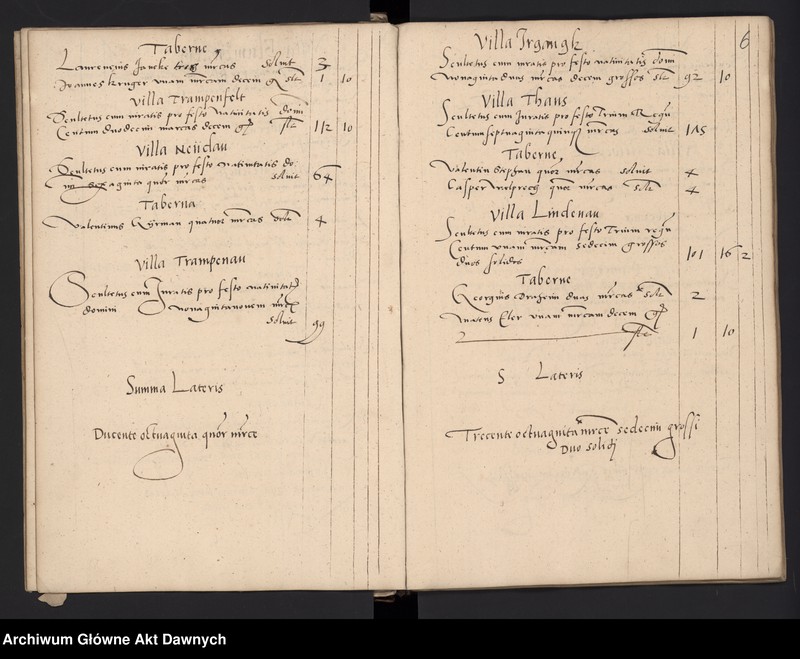 Taberne
Laurencius Jancke tres mrcas soluit 3
Joannes Kruger unam mrcam decem gr slt 1 10
Villa Trampenfelt
Scultetus cum iuratis pro festo nativitatis domi
Centum duodecim marcas decem gr slt 112 10
Villa Neudau
Scultetus cum iuratis pro festo nativitatis do
sexaginta quor mrcas soluit 64
Taberna
Valentinus quatuor mrcas 4
Villa Trampenau
Scultetus cum Iuratis pro festo nativitatis
domini Nonagintanovem mrcas
soluit 99
Summa Lateris
Ducente octuaginta quor mrce
6
Villa Irgangk
Scultetus cum iuratis pro festo nativitatis domi
Nonaginta duas mrcas decem grossos slt 92 10
Villa Thans
Scultetus cum Iuratis pro festo Trium Regu
Centum septuaginta quinq mrcas soluit 175
Taberne
Valentin Stephan quor mrcas soluit 4
Casper quor mrcas solt 4
Villa Lindenau
Scultetus cum iuratis pro festo Trium regu
Centum unam mrcam sedecim grossos
duos solidos 101 16 2
Taberne
Georgius duas mrcas solt 2
unam mrcam decem gr
slt 1 10
S Lateris
Trecente octuaginta mrce sedecim grossi
Duo solidi
Archiwum Główne Akt Dawnych